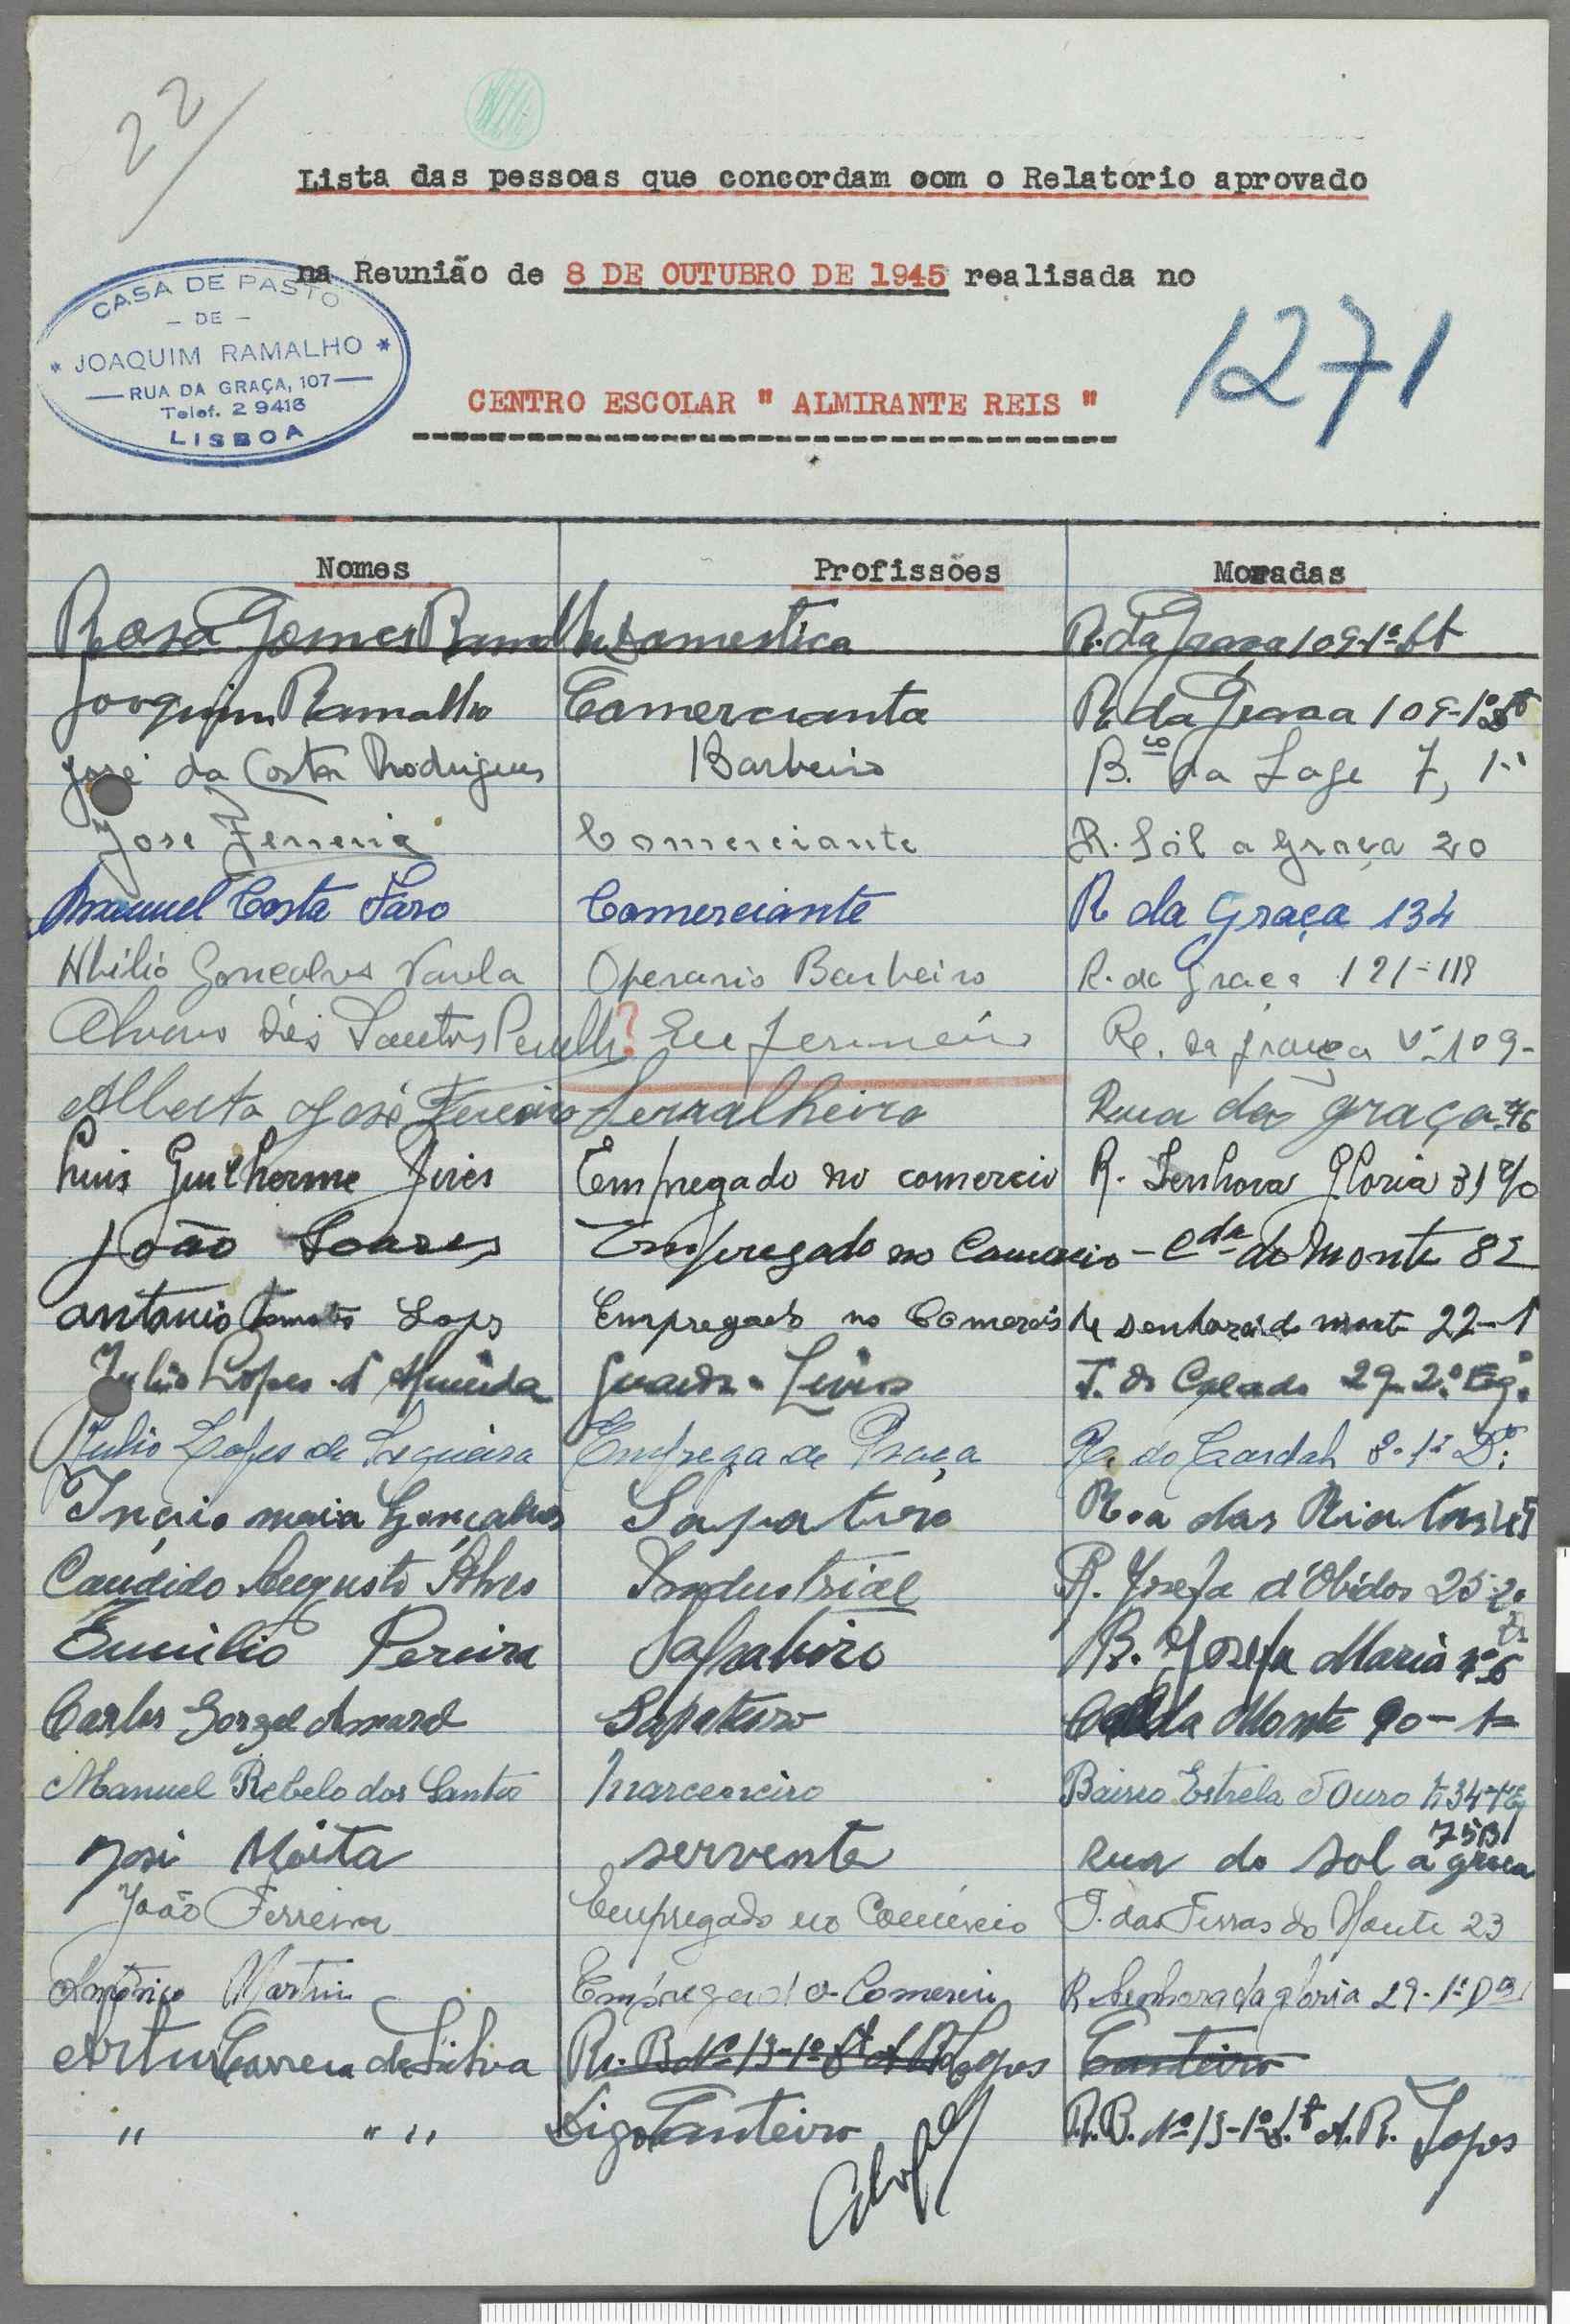 22
Lista das pessoas que concordam com o Relatorio aprovado
na Reunião de 8 DE OUTUBRO DE 1945 realisada no
CASA DE PASTO
- DE -
* JOAQUIM RAMALHO *
RUA DA GRAÇA, 107
Telef. 2 9416
LISBOA
1271
CENTRO ESCOLAR " ALMIRANTE REIS "
Nomes Profissões Moradas
Rosa Gomes Ramalho Domestica R. da Graça 109-1º
Joaquim Ramalho Comercianta R. da Graça 109-1º
José da Costa Rodrigues Barbeiro B.co da Lage 7, 1º
Jose Ferreira Comerciante R. Sól a Graça 20
Manuel Costa Faro Comerciante R da Graça 134
Abilio Gonçalves Varela Operario Barbeiro R. da Graça 121-119
Alvaro dos Santos ? Enfermeiro R. da graça 109-
Alberto José Serralheiro Rua da graça 76
Luis Guilherme Pires Empregado no comercio R. Senhora Gloria 31 r/c
João Soares Empregado no Comercio - Cda do Monte 82
antonio Lops Empregado no Comercio senhora do monte 22-1
Julio Lopes d'Almeida Guarda-Livros T. do 29-2º Esq.
Julio Lopes de Sequeira Emprega de Praça R. do Cardal 8-1º D.
Inácio maia Gonçalves Sapateiro
Candido Augusto Alves Industrial R. Josefa d'Obidos 25-2º
Emilio Pereira Sapateiro R. Josefa Maria nº 6
Carlos Amaral Sapateiro do Monte 90-1º
Manuel Rebelo dos Santos Marceneiro Bairro Estrela d'Ouro
José Moita servente Rua do Sol á graça 75 B
João Ferreira Empregado no Comércio T. das Terras do Monte 23
Américo Martins Empregado Comercio R. Senhora da gloria 29-1º
Artur Correia da Silva R. B. Nº 13-1º Lopes Canteiro
" " " Digo Canteiro R. B. Nº 13-1º A. R. Lopes